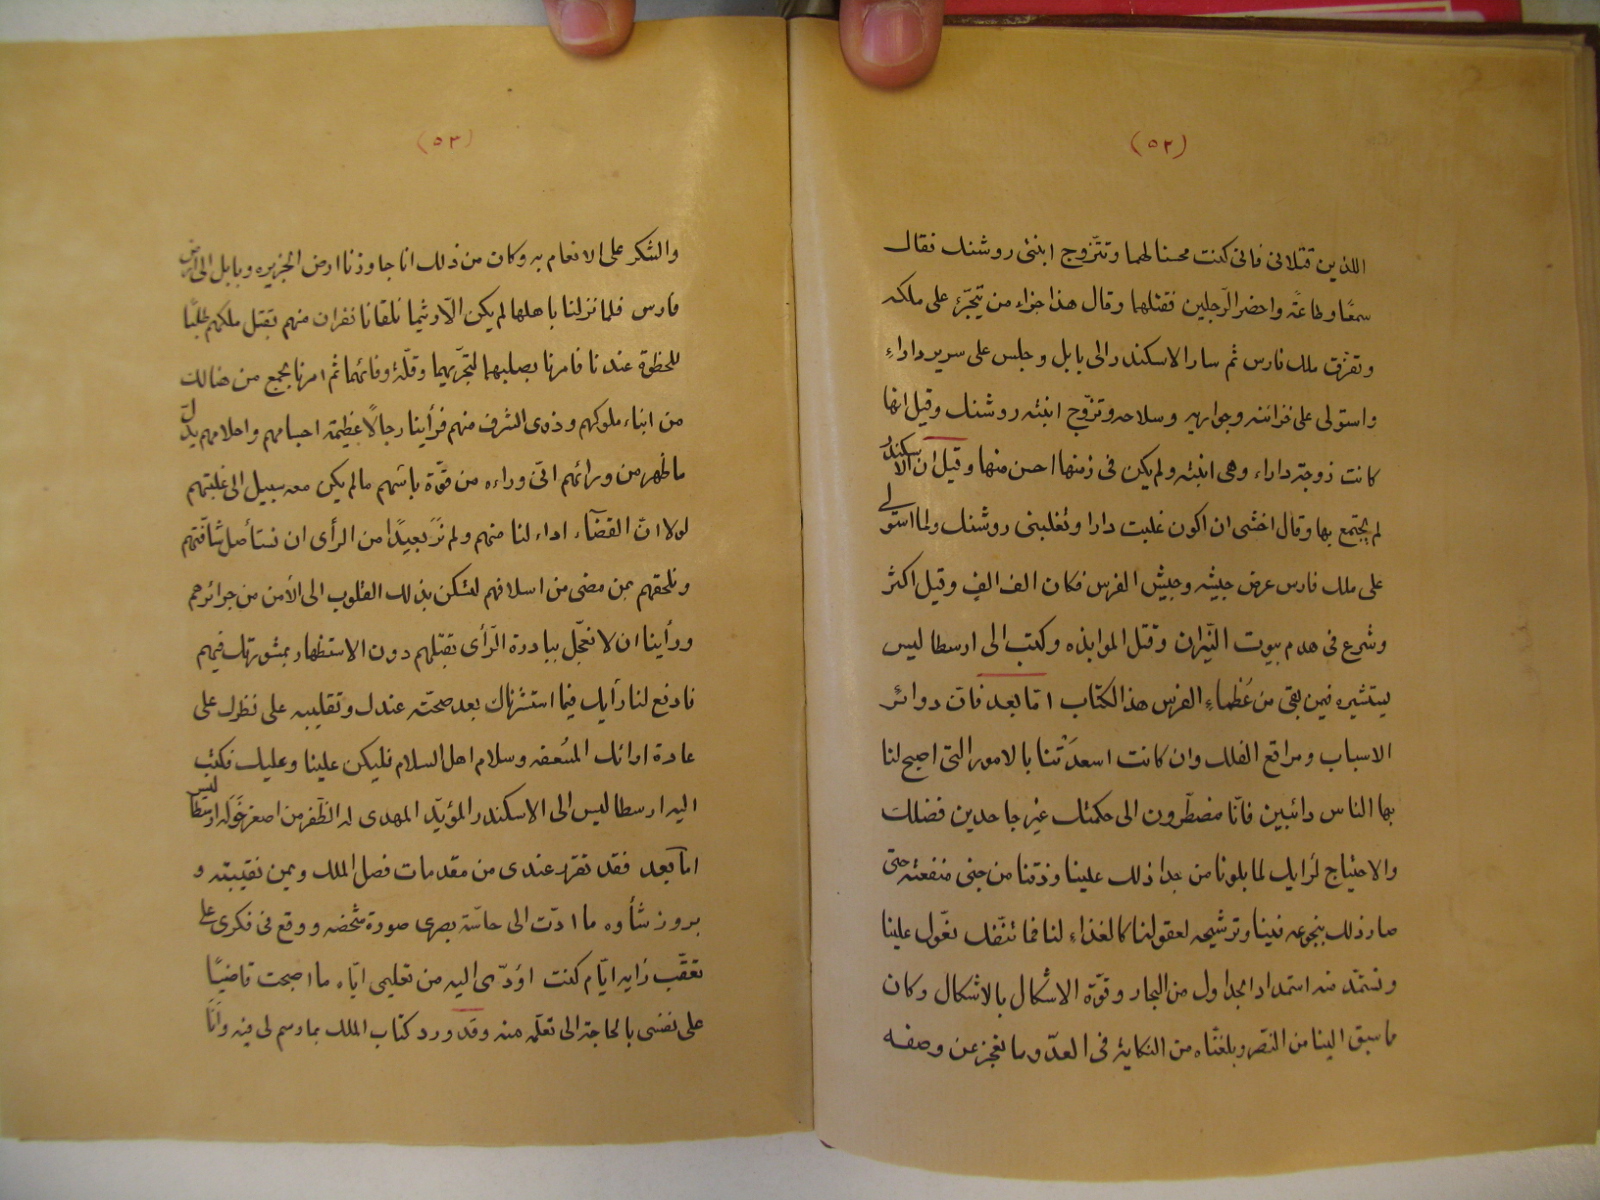 (٥٢)
اللذين قتلانى فانى كنت محسنا لهما وتتزوج ابنتى روشنك فقال
سمعًا وطاعةً واحضر الرّجلين فقتلهما وقال هذا جزاء من يتجرّئ على ملكه
وتفرّق ملك فارس ثم سار الاسكندر الى بابل وجلس على سرير داراءِ
واستولى على خزائنه وجواريه وسلاحه وتزوّج ابنته روشنك وقيل انها
كانت زوجة داراء وهى ابنته ولم يكن فى زمنها احسن منها وقيل ان الاسكندر
لم يجتمع بها وقال اخشى ان اكون غلبت دارا وتغلبنى روشنك ولما استولى
على ملك فارس عرض جيشه وجيش الفرس فكان الف الفٍ وقيل اكثر
وشرع فى هدم بيوت النّيران وقتل الموابذه وكتب الى ارسطاليس
يستشيره فيمن بقى من عُظماءِ الفرس هذ الكتاب امّا بعد فان دوائر
الاسباب ومواقع الفلك وان كانت اسعدَتْنا بالامور التى اصبح لنا
بها الناس دائبين فانّا مضطّرون الى حكمتك غير جاحدين فضلك
والاحتياج لرايك لما بلونا من جدا ذلك علينا وذقنا من جنى منفعته حتى
صار ذلك بنجوعه فينا وترشيحه لعقولنا كالغذاءِ لنا فما ننفك نعّول علينا
ونستمدّ منه استمداد الجداول من البحار وقوّة الاشكال بالاشكال وكان
ماسبق الينا من النصر وبلغنّاه من النكاية فى العدّو ما نعجز عن وصفه
(٥٣)
والشكر على الانعام به وكان من ذلك انا جاوزنا ارض الجزيره وبابل الى ارض
فارس فلما نزلنا باهلها لم يكن الّا ريثما تلقانا نفران منهم بقتل ملكهم طلبًا
للحظوة عندنا فامرنا بصلبهما لتجرّيهما وقلّة وفائهما ثم امرنا بجمع من هنالك
من ابناء ملوكهم وذوى الشرف منهم فرأينا رجالًا عظيمة اجسامهم واحلامهم يدلّ
ما ظهر من ورائهم انّ وراءه من قوّة باسهم مالم يكن معه سبيل الى غلبتهم
لولا انّ القضآء اداء لنا منهم ولم نَرَ بعيدًا من الرأى ان نستأصل شأفتهم
ونلحقهم بمن مضى من اسلافهم لتسكن بذلك القلوب الى الأمن من جرائرهم
ورأينا ان لا نعجّل ببادرة الرّأى بقتلهم دون الاستظهار بمشورتك فيهم
فادفع لنا رأيك فيما استشرناك بعد صحته عندك وتقليبه على نظرك على
عادة ارائك المسُعفه وسلام اهل السلام فليكن علينا وعليك فكتب
اليه ارسطاليس الى الاسكندر المؤيّد المهدى له الظّفر من اصغر خَوَله ارسطاليس
امّا بعد فقد تقرّر عندى من مقدمات فضل الملك ويمن نقيبته و
بروز شأوه ما ادّت الى حاسّة بصرى صورة شخصه ووقع فى فكرى على
تعقّب رايه ايّام كنت اوَدّى اليه من تعليمى ايّاه ما اصبحت قاضيًا
على نفسى بالحاجة الى تعلّمه منه وقد ورد كتاب الملك بما رسم لى فيه وأنَا